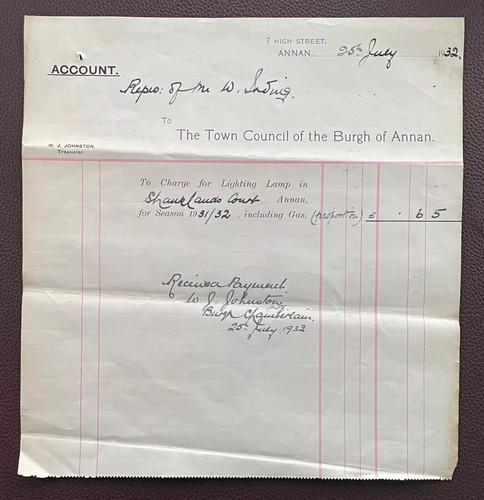 7 HIGH STREET,
ANNAN, 25th July 1932.
ACCOUNT.
Reprs: of Mr W. Irving.
To
The Town Council of the Burgh of Annan.
W. J. JOHNSTON,
Treasurer.
To Charge for Lighting Lamp in
Shanklands Court Annan,
for Season 1931/32, including Gas, (proportion) £ . 6 5
Received Payment
W. J. Johnston
Burgh Chamberlain.
25th July 1932